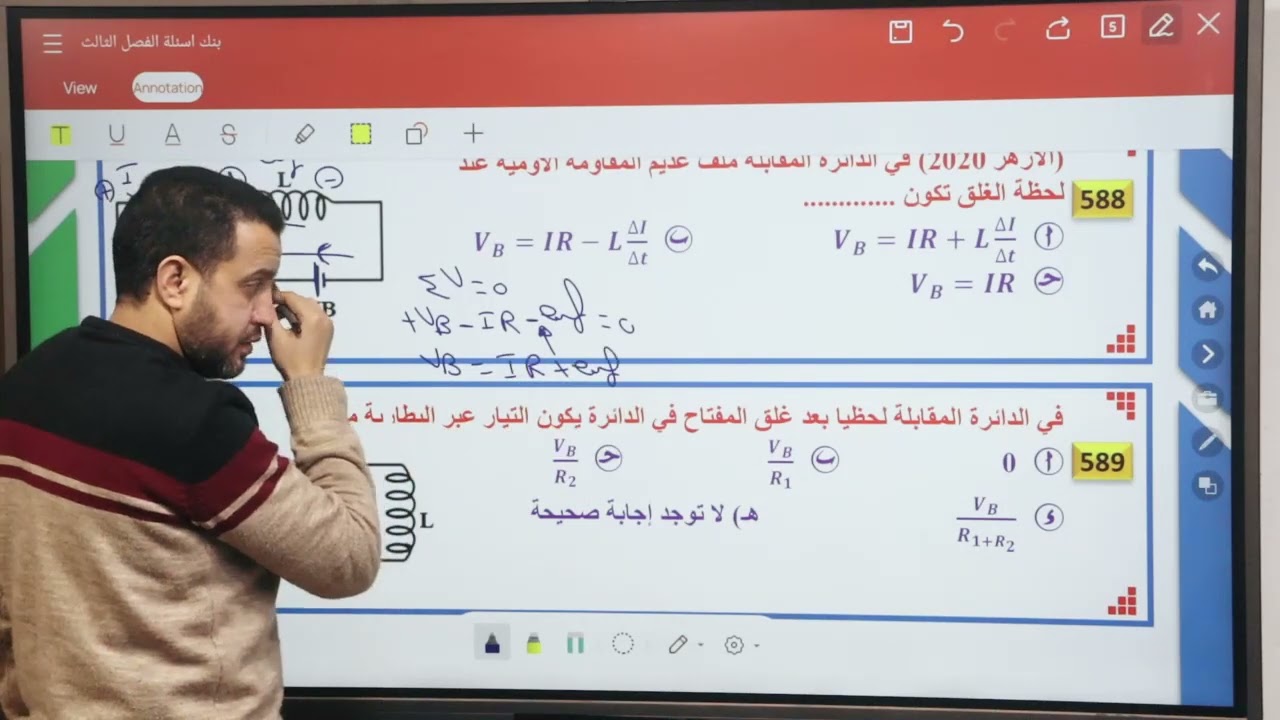 بنك اسئلة الفصل الثالث
5
View
Annotation
T U A S
588
(الازهر 2020) في الدائرة المقابلة ملف عديم المقاومة الاومية عند
لحظة الغلق تكون ..............
أ V_B = IR + L ΔI/Δt
ب V_B = IR − L ΔI/Δt
ج V_B = IR
I
(+)
L
(−)
B
ΣV = 0
+VB − IR − emf = 0
VB = IR + emf
589
في الدائرة المقابلة لحظيا بعد غلق المفتاح في الدائرة يكون التيار عبر البطارية
أ 0
ب V_B/R_1
ج V_B/R_2
د V_B/R_{1+R_2}
هـ) لا توجد إجابة صحيحة
L